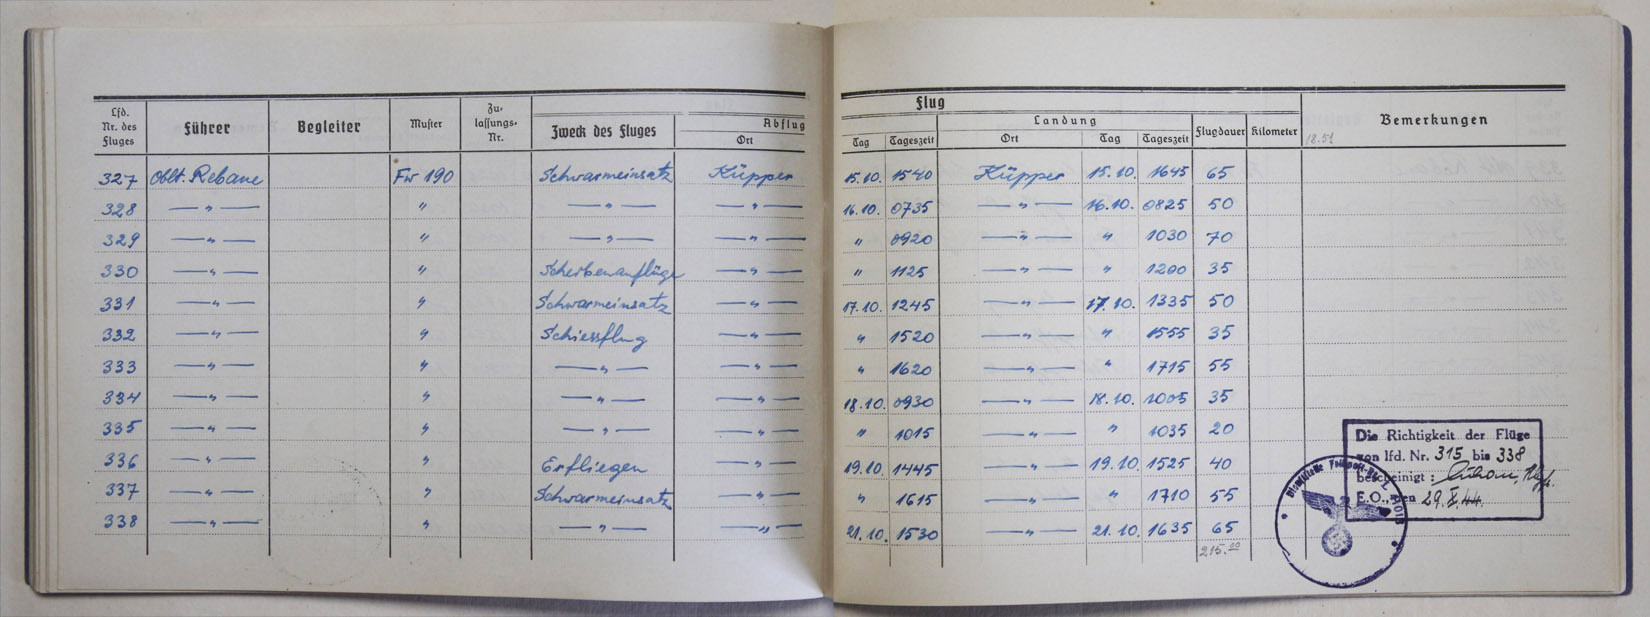 Lfd. Nr. des Fluges | Führer | Begleiter | Muster | Zulassungs-Nr. | Zweck des Fluges | Flug | Bemerkungen
Abflug | Landung | Flugdauer | Kilometer
Ort | Tag | Tageszeit | Ort | Tag | Tageszeit
18.51
327 Oblt. Rebane Fw 190 Schwarmeinsatz Küpper 15.10. 1540 Küpper 15.10. 1645 65
328 —"— " —"— —"— 16.10. 0735 —"— 16.10. 0825 50
329 —"— " —"— —"— " 0920 —"— " 1030 70
330 —"— " Scheibenanflüge —"— " 1125 —"— " 1200 35
331 —"— " Schwarmeinsatz —"— 17.10. 1245 —"— 17.10. 1335 50
332 —"— " Schiessflug —"— " 1520 —"— " 1555 35
333 —"— " —"— —"— " 1620 —"— " 1715 55
334 —"— " —"— —"— 18.10. 0930 —"— 18.10. 1005 35
335 —"— " —"— —"— " 1015 —"— " 1035 20
336 —"— " Erfliegen —"— 19.10. 1445 —"— 19.10. 1525 40
337 —"— " Schwarmeinsatz —"— " 1615 —"— " 1710 55
338 —"— " —"— —"— 21.10. 1530 —"— 21.10. 1635 65
215.00
Die Richtigkeit der Flüge
von lfd. Nr. 315 bis 338
bescheinigt :
E.O., den 29.X.44.
Dienststelle Feldpost-Nr. L